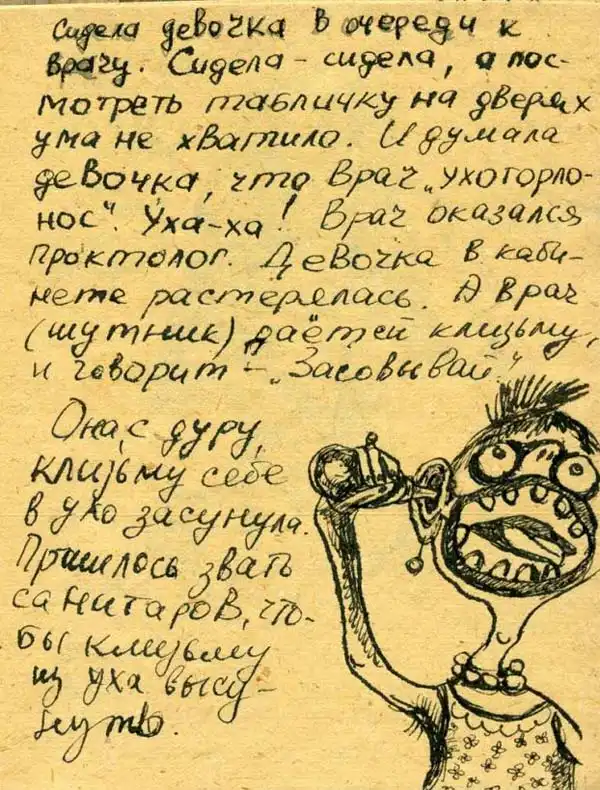 Сидела девочка в очереди к
врачу. Сидела - сидела, а пос-
мотреть табличку на дверях
ума не хватило. И думала
девочка, что врач „ухогорло-
нос". Уха-ха! Врач оказался
проктолог. Девочка в каби-
нете растерялась. А врач
(шутник) даёт ей клизьму,
и говорит - „Засовывай!"
Она, с дуру,
клизьму себе
в ухо засунула.
Пришлось звать
санитаров, что-
бы клизьму
из уха высу-
нуть.